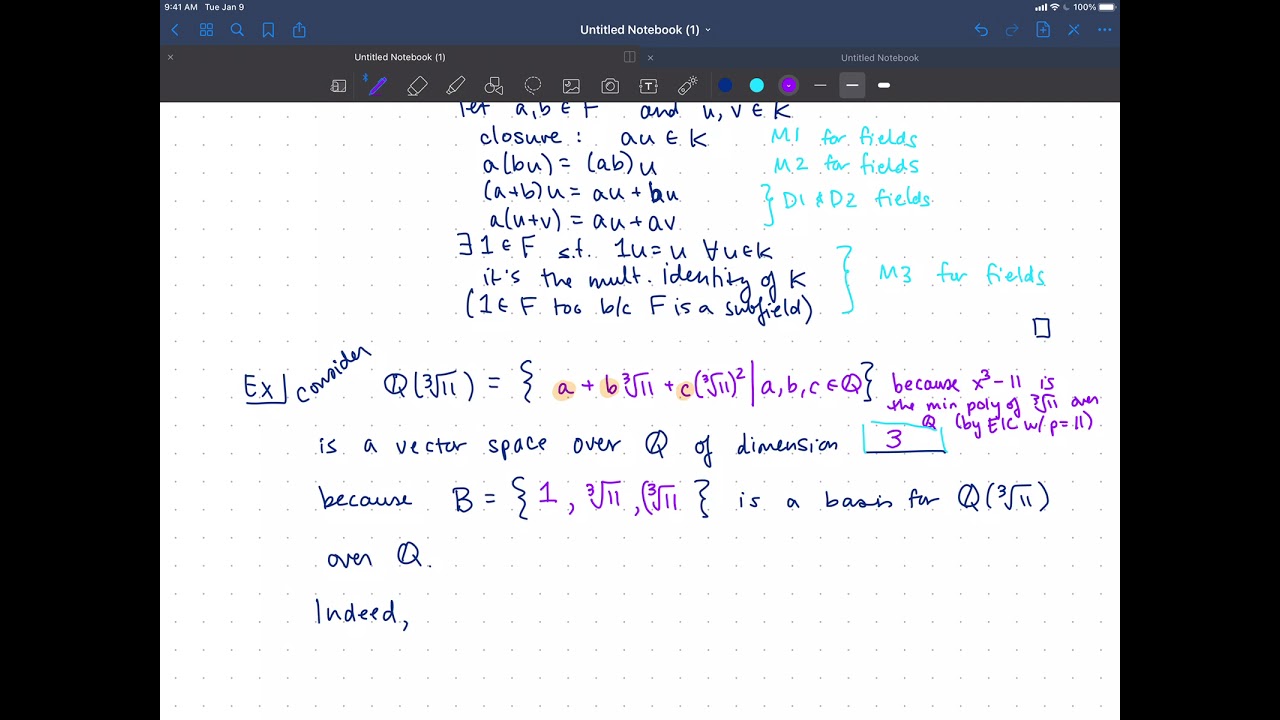 9:41 AM Tue Jan 9
100%
Untitled Notebook (1)
Untitled Notebook (1)
Untitled Notebook
let a, b ∈ F and u, v ∈ K
closure : au ∈ K M1 for fields
a(bu) = (ab)u M2 for fields
(a+b)u = au + bu
a(u+v) = au + av } D1 & D2 fields
∃ 1 ∈ F s.t. 1u = u ∀u∈K
it's the mult. identity of K } M3 for fields
(1 ∈ F too b/c F is a subfield)
□
Ex| consider ℚ(∛11) = { a + b ∛11 + c(∛11)² | a, b, c ∈ ℚ}
because x³ - 11 is
the min poly of ∛11 over
ℚ (by EIC w/ p = 11)
is a vector space over ℚ of dimension 3
because B = { 1, ∛11, (∛11 } is a basis for ℚ(∛11)
over ℚ.
Indeed,